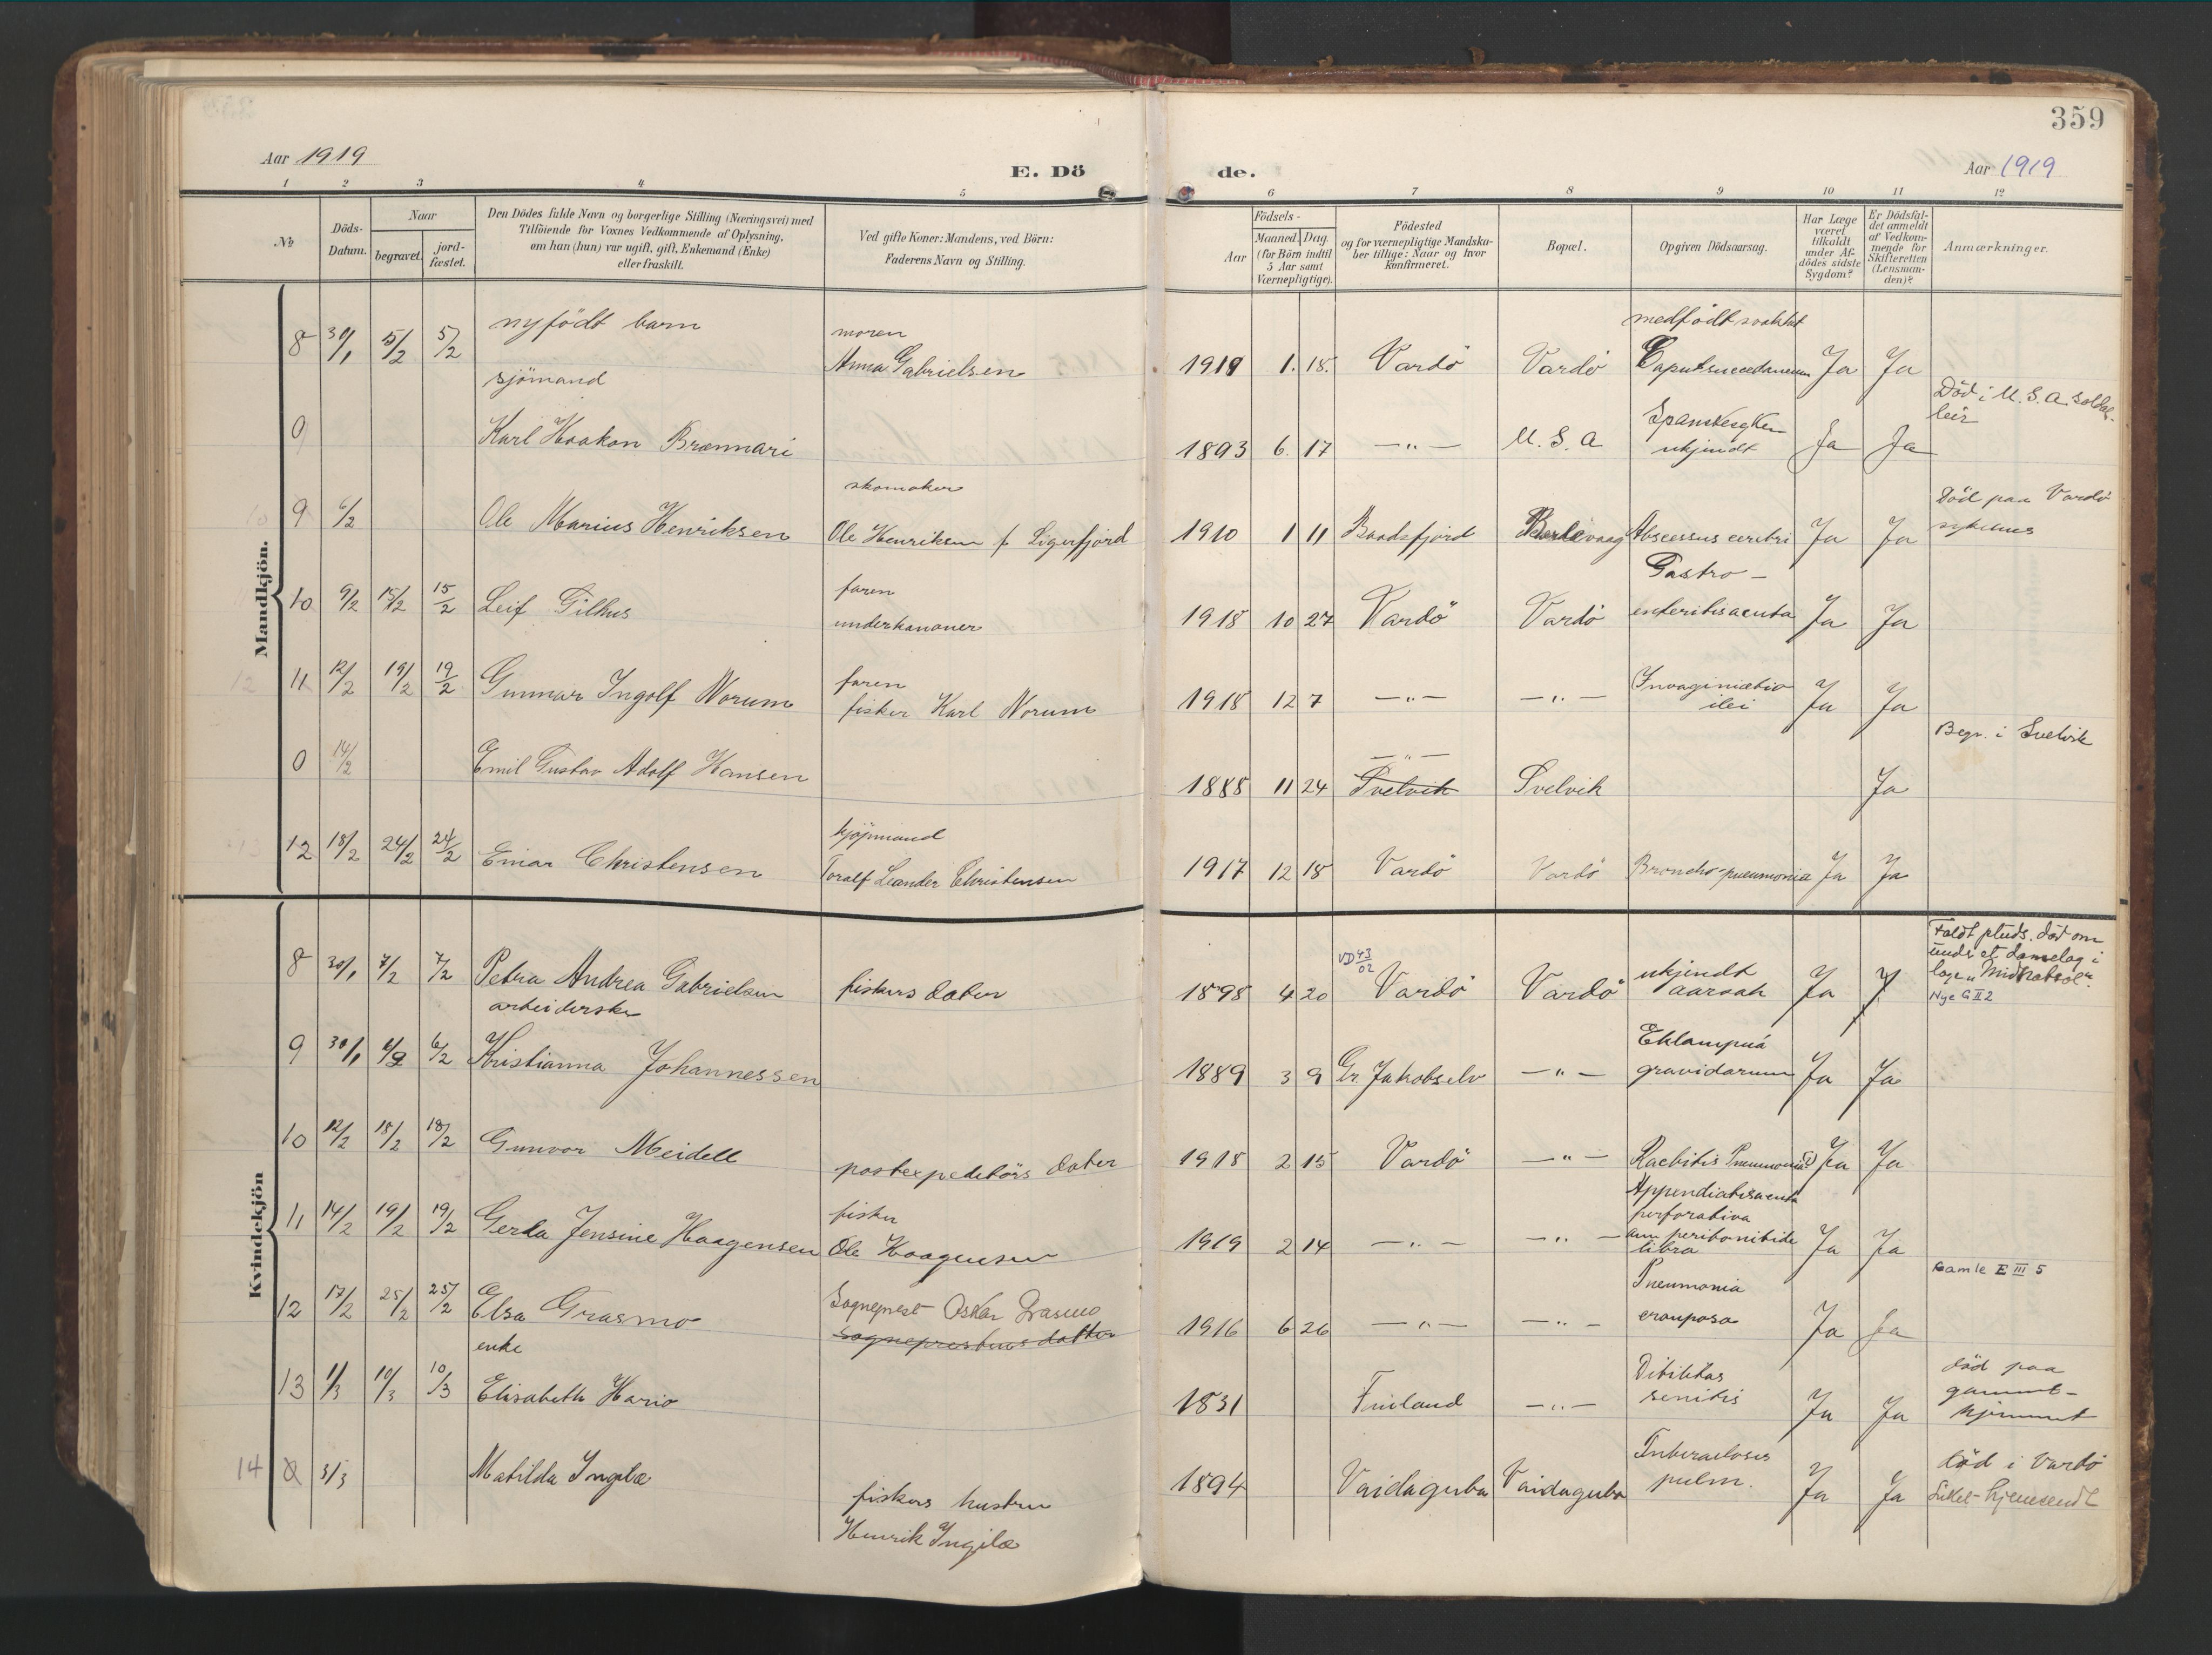 359
Aar 1919
E. Dö
de.
Aar 1919
1 2 3 4 5 6 7 8 9 10 11 12
No
Döds-
Datum.
Naar
begravet.
jord-
fæstet.
Den Dödes fulde Navn og borgerlige Stilling (Næringsvei) med
Tilföiende for Voxnes Vedkommende af Oplysning,
om han (hun) var ugift, gift, Enkemand (Enke)
eller fraskilt.
Ved gifte Koner: Mandens, ved Börn:
Faderens Navn og Stilling.
Födsels-
Aar
Maaned. Dag.
(for Börn indtil
5 Aar samt
Værnepligtige).
Födested
og for værnepligtige Mandska-
ber tillige: Naar og hvor
konfirmeret.
Bopæl.
Opgiven Dödsaarsag.
Har Læge
været
tilkaldt
under Af-
dödes sidste
Sygdom?
Er Dödsfal-
det anmeldt
af Vedkom-
mende for
Skifteretten
(Lensman-
den)?
Anmærkninger.
Mandkjön.
nyfödt barn moren medfödt svakhet
8 30/1 5/2 5/2 Anna Gabrielsen 1919 1. 18. Vardö Vardö Caput succedaneum Ja Ja
sjömand Spanskesyken Död i U.S.A. soldat-
leir
0 Karl Haakon Brannari 1893 6. 17 —„— U.S.A ukjendt Ja Ja
skomaker Död paa Vardö
9 6/2 Ole Marius Henriksen Ole Henriksen 1910 1 11 Baadsfjord Berlevaag Abscessus cerebri Ja Ja sykehus
faren Gastro-
10 9/2 15/2 15/2 Leif Gilhus underkanoner 1918 10 27 Vardö Vardö enteritis acuta Ja Ja
faren Invaginatio
12 11 12/2 19/2 19/2 Gunnar Ingolf Norum fisker Karl Norum 1918 12 7 —„— —„— ilei Ja Ja
Begr. i Svelvik
—„—
0 14/2 Emil Gustav Adolf Hansen 1888 11 24 Svelvik Svelvik Ja
kjöpmand
13 12 18/2 24/2 24/2 Einar Christensen Toralf Leander Christensen 1917 12 18 Vardö Vardö Broncho-pneumonia Ja Ja
Kvindekjön
VD 43/02 ukjendt Faldt pluds. död om
under et danselag i
loge „Midnatsol".
8 30/1 7/2 7/2 Petra Andrea Gabrielsen fiskers datter 1898 4 20 Vardö Vardö aarsak Ja J Nye G II 2
arbeiderske Eklampsia
9 30/1 6/2 6/2 Kristianna Johannessen 1889 3 9 Gr. Jakobselv —„— gravidarum Ja Ja
10 12/2 18/2 18/2 Gunvor Meidell postexpeditörs datter 1918 2 15 Vardö —„— Rachitis Pneumonia (?) Ja Ja
fisker Appendicitis acuta
perforativa
11 14/2 19/2 19/2 Gerda Jensine Haagensen Ole Haagensen 1919 2 14 —„— —„— cum peritonitide Ja Ja
libra
Pneumonia Gamle E III 5
12 17/2 25/2 25/2 Elsa Grasmo Sogneprest Oskar Grasmo 1916 6 26 —„— —„— crouposa Ja Ja
sogneprestens datter
enke Debilitas död paa
13 1/3 10/3 10/3 Elisabeth Hario 1831 Finland —„— senilis Ja Ja gammel-
hjemmet
Tuberculosis död i Vardö
14 0 3/3 Matilda Ingilæ fiskers hustru 1894 Vaidaguba Vaidaguba pulm. Ja Ja Liket hjemsendt
Henrik Ingilæ